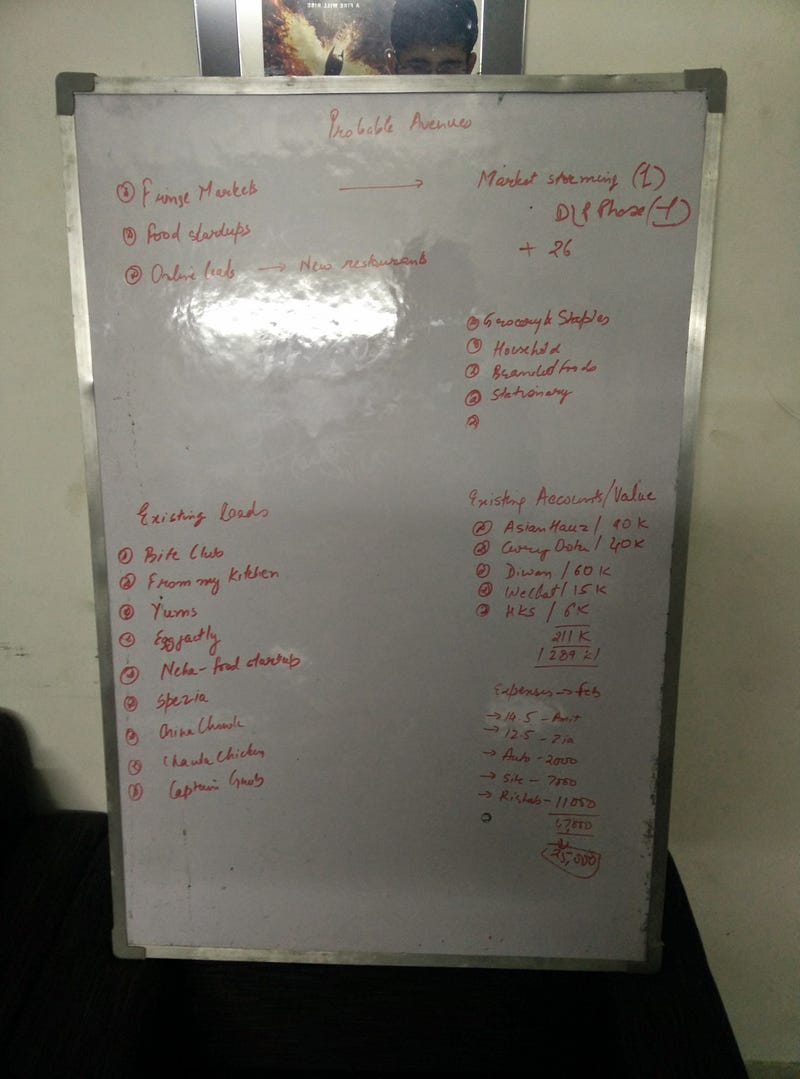 A FIRE WILL RISE
Probable Avenues
Fringe Markets → Market storming (1)
DLP Phase (-1)
Food startups
+ 26
Online leads → New restaurants
Grocery & Staples
Household
Branded foods
Stationary
Existing Leads
Bite Club
From my Kitchen
Yums
Eggjactly
Neha - food startup
Spezia
China Chowk
Chawla Chicken
Captain Grub
Existing Accounts/Value
Asian Hauz / 90 K
Curry Dotn / 40K
Diwan / 60 K
Wechat / 15 K
HKS / 6K
211 K
289 K
Expenses → Feb
→ 14.5 - Amit
→ 12.5 - Zia
→ Auto - 2000
→ Site - 7000
→ Rishab - 11000
47,000